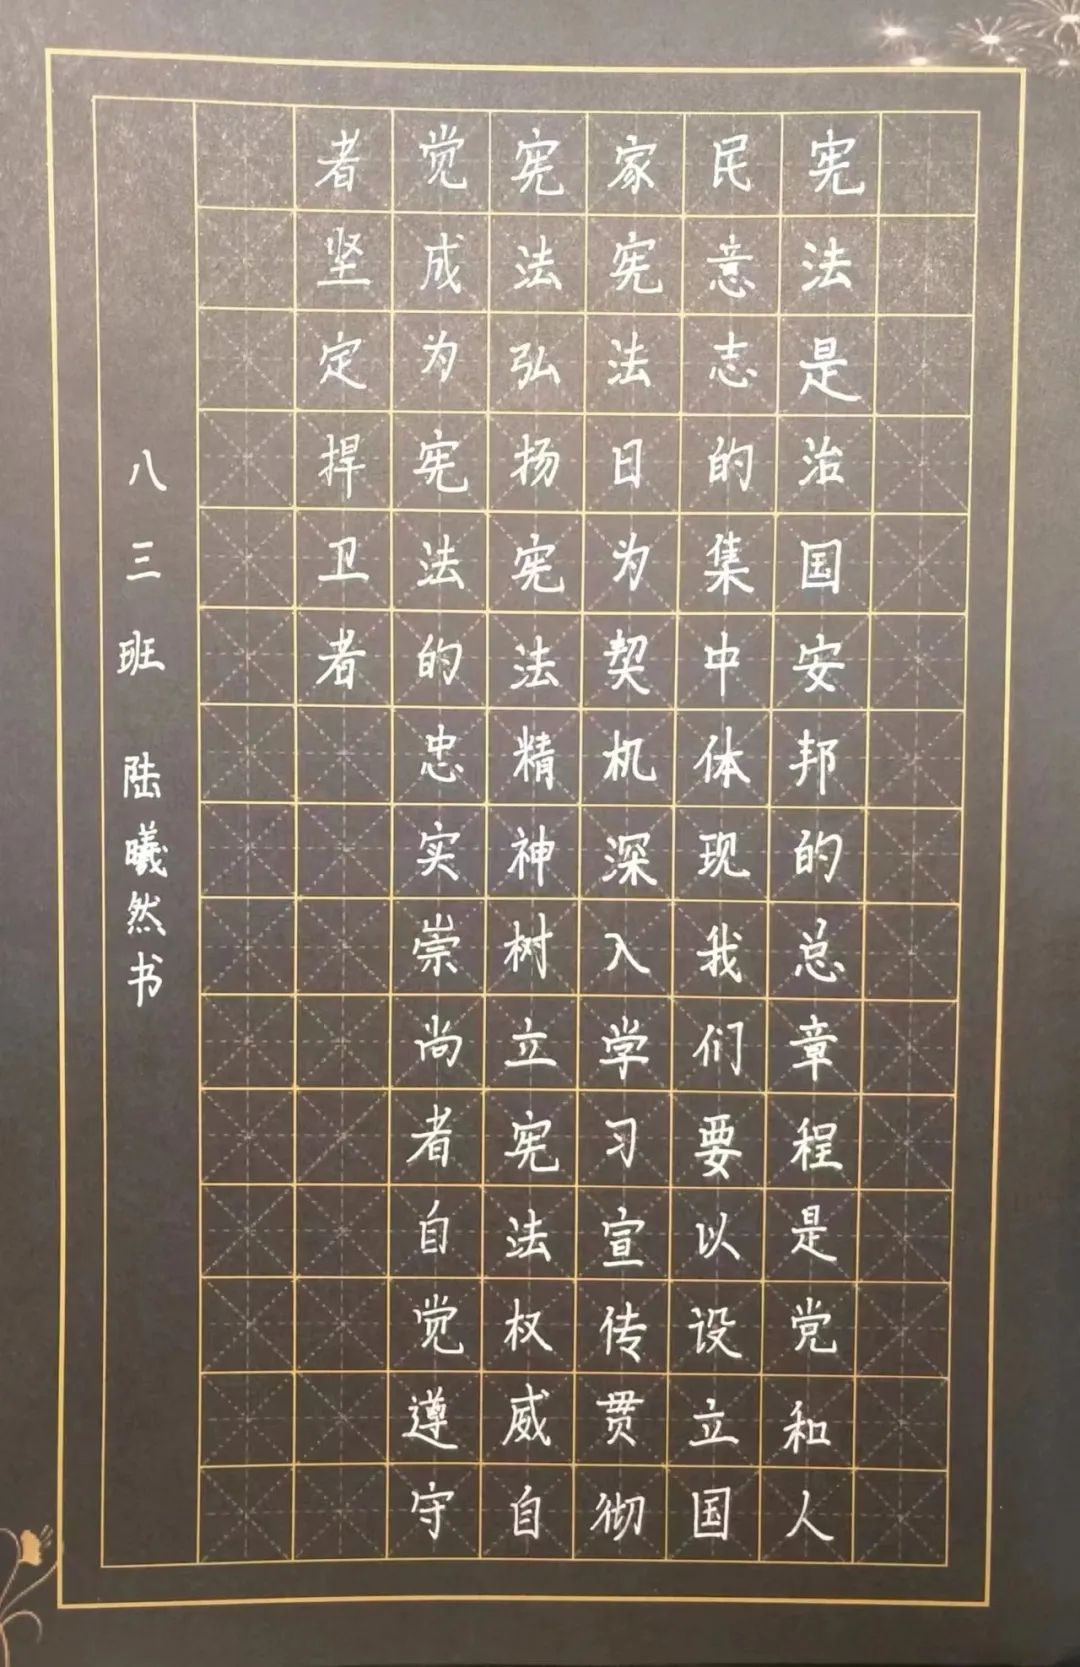 宪法是治国安邦的总章程是党和人
民意志的集中体现我们要以设立国
家宪法日为契机深入学习宣传贯彻
宪法弘扬宪法精神树立宪法权威自
觉成为宪法的忠实崇尚者自觉遵守
者坚定捍卫者
八三班 陆曦然书